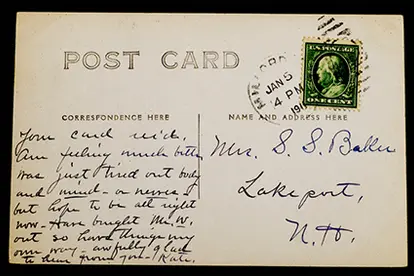 POST CARD
MILFORD
JAN 5
4 PM
191
U.S. POSTAGE
ONE CENT
CORRESPONDENCE HERE
NAME AND ADDRESS HERE
Your card rec'd.
Am feeling much better
was just tired out body
and mind - or nerves -
but hope to be all right
now - Have bought Mr. W.
out so have things my
own way - awfully glad
to hear from you - Kate.
Mrs. S. S. Baker
Lakeport,
N. H.